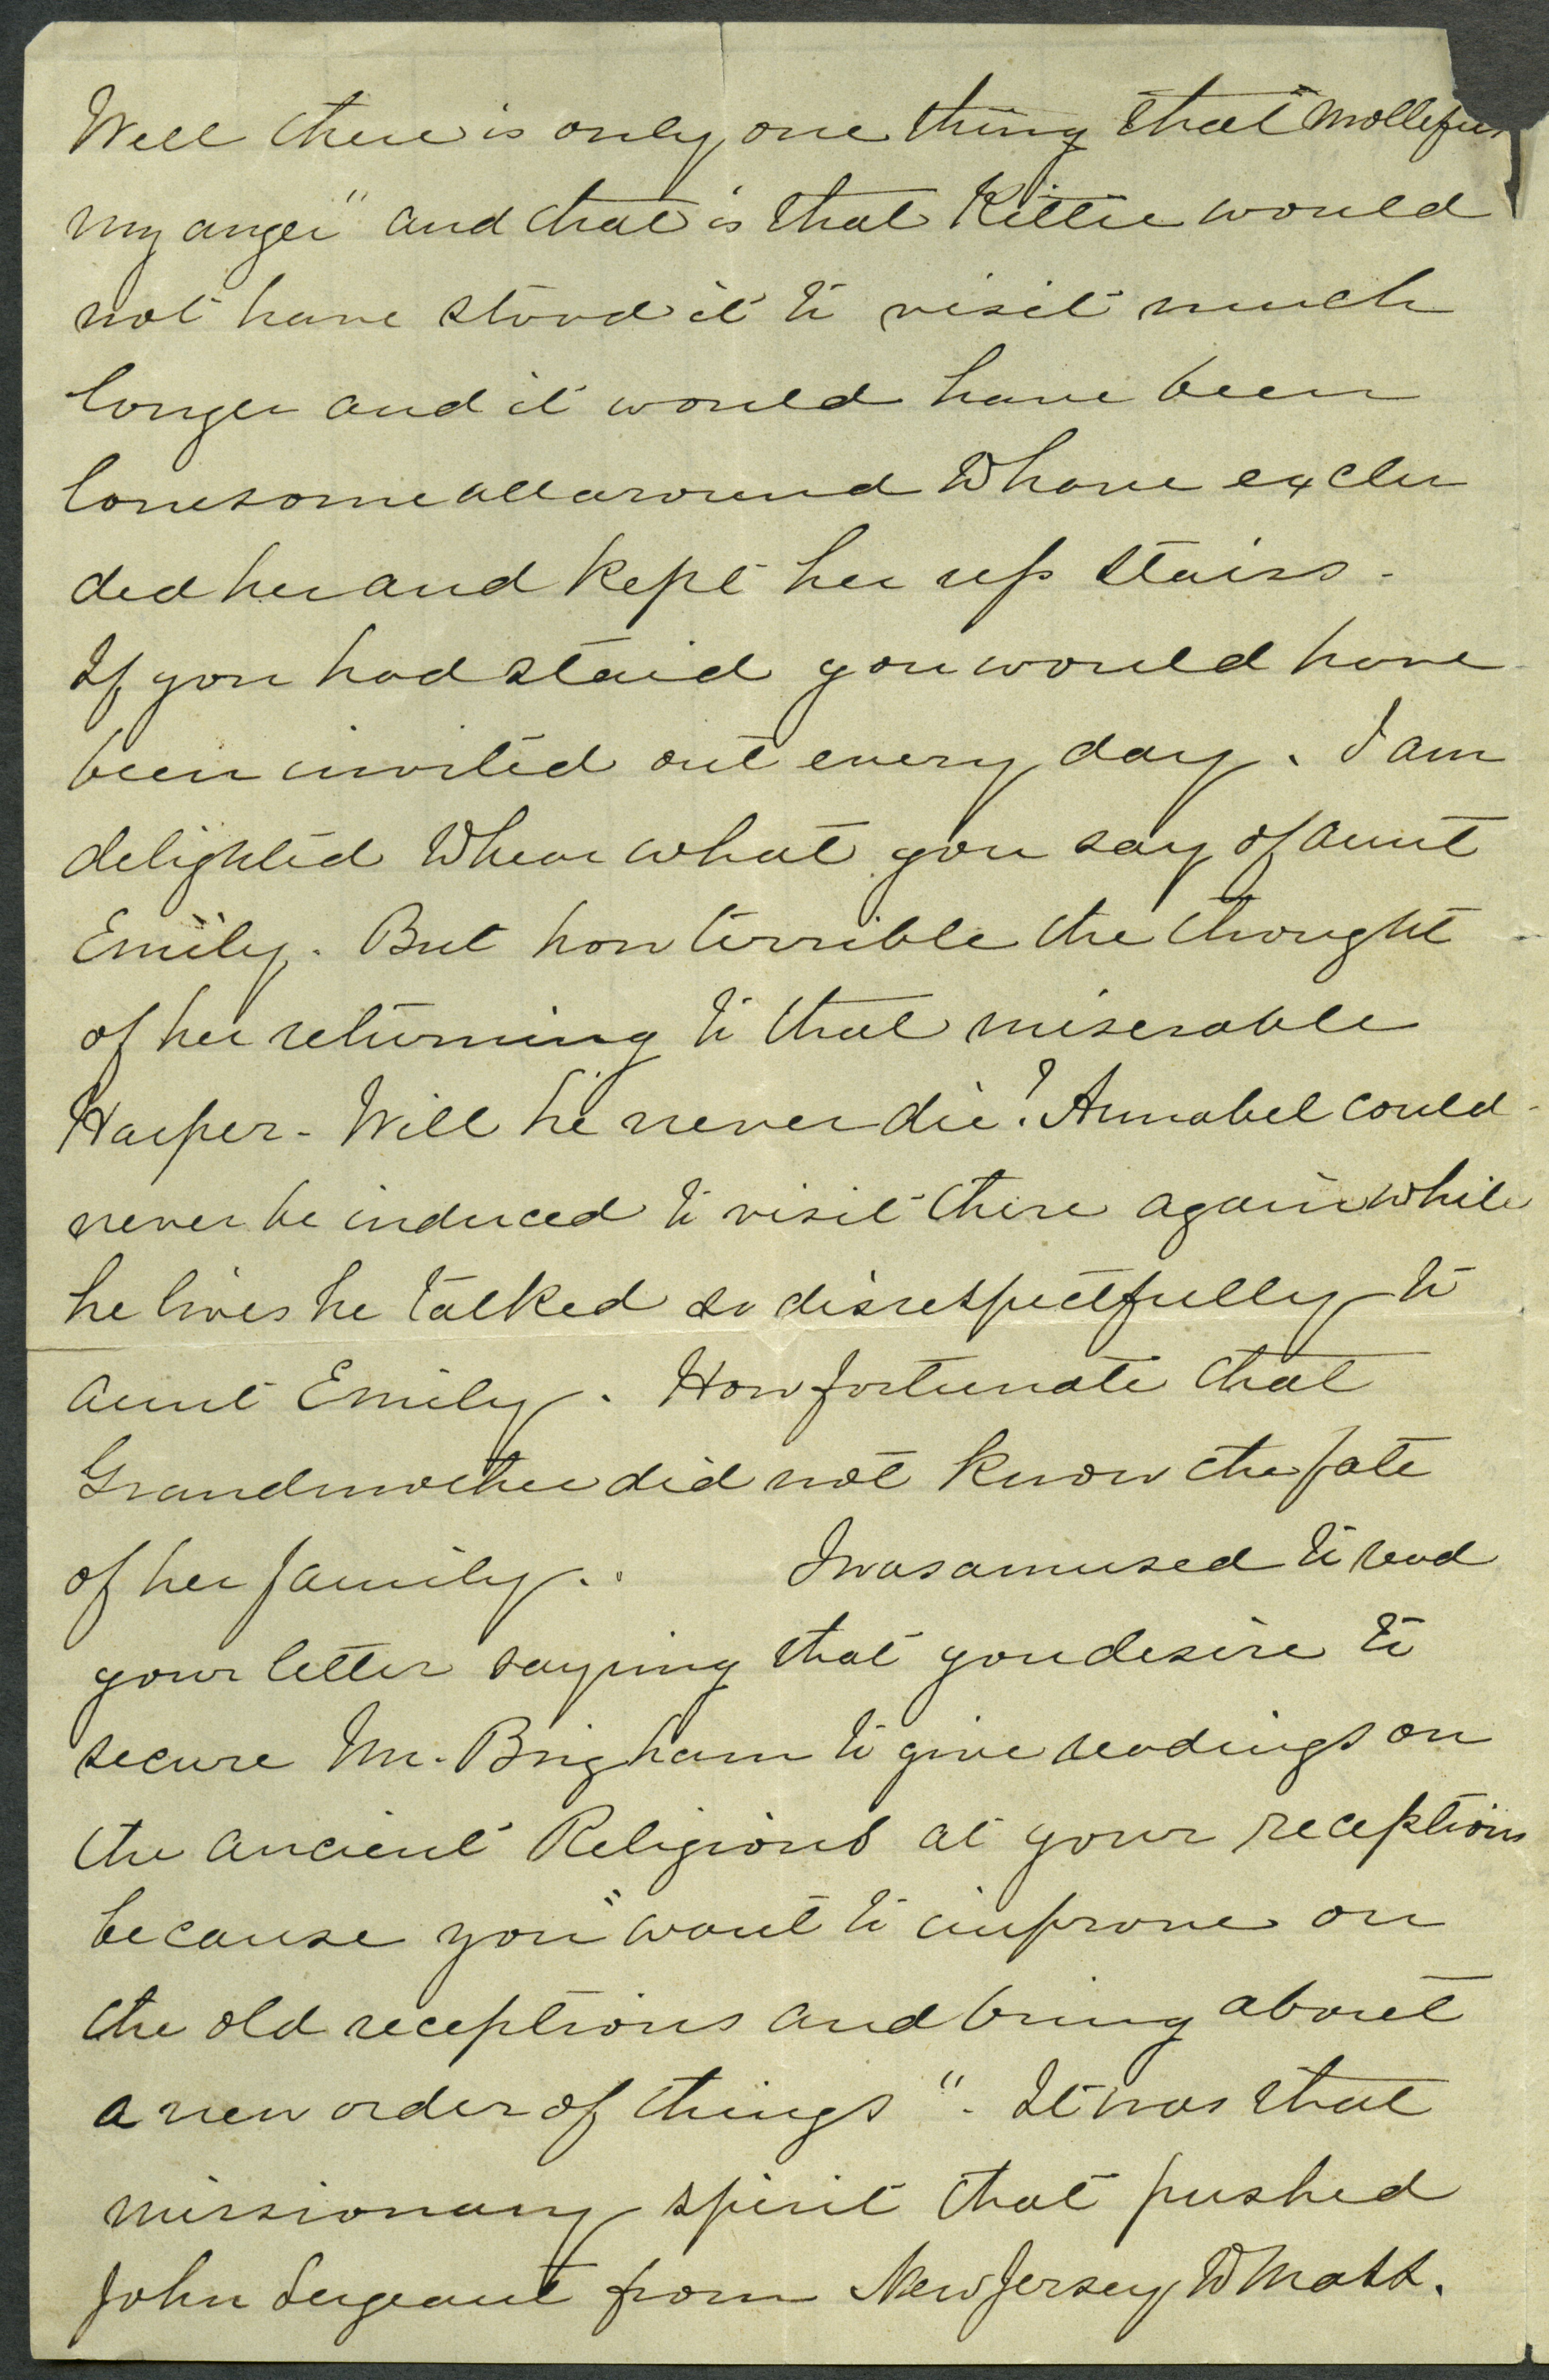 Well there is only one thing that "mollefies
my anger" and that is that Kittie would
not have stood it to visit much
longer and it would have been
lonesome all around to have exclu
ded her and kept her up stairs.
If you had staid you would have
been invited out every day. I am
delighted to hear what you say of Aunt
Emily. But how terrible the thought
of her returning to that miserable
Harper - Will he never die? Annabel could
never be induced to visit there again while
he lives he talked so disrespectfully to
Aunt Emily. How fortunate that
Grandmother did not know the fate
of her family.. I was amused to read
your letter saying that you desire to
secure Mr. Brigham to give readings on
the Ancient Religions at your receptions
because you "want to improve on
the old receptions and bring about
a new order of things". It was that
missionary spirit that pushed
John Sergeant from New Jersey to Mass.